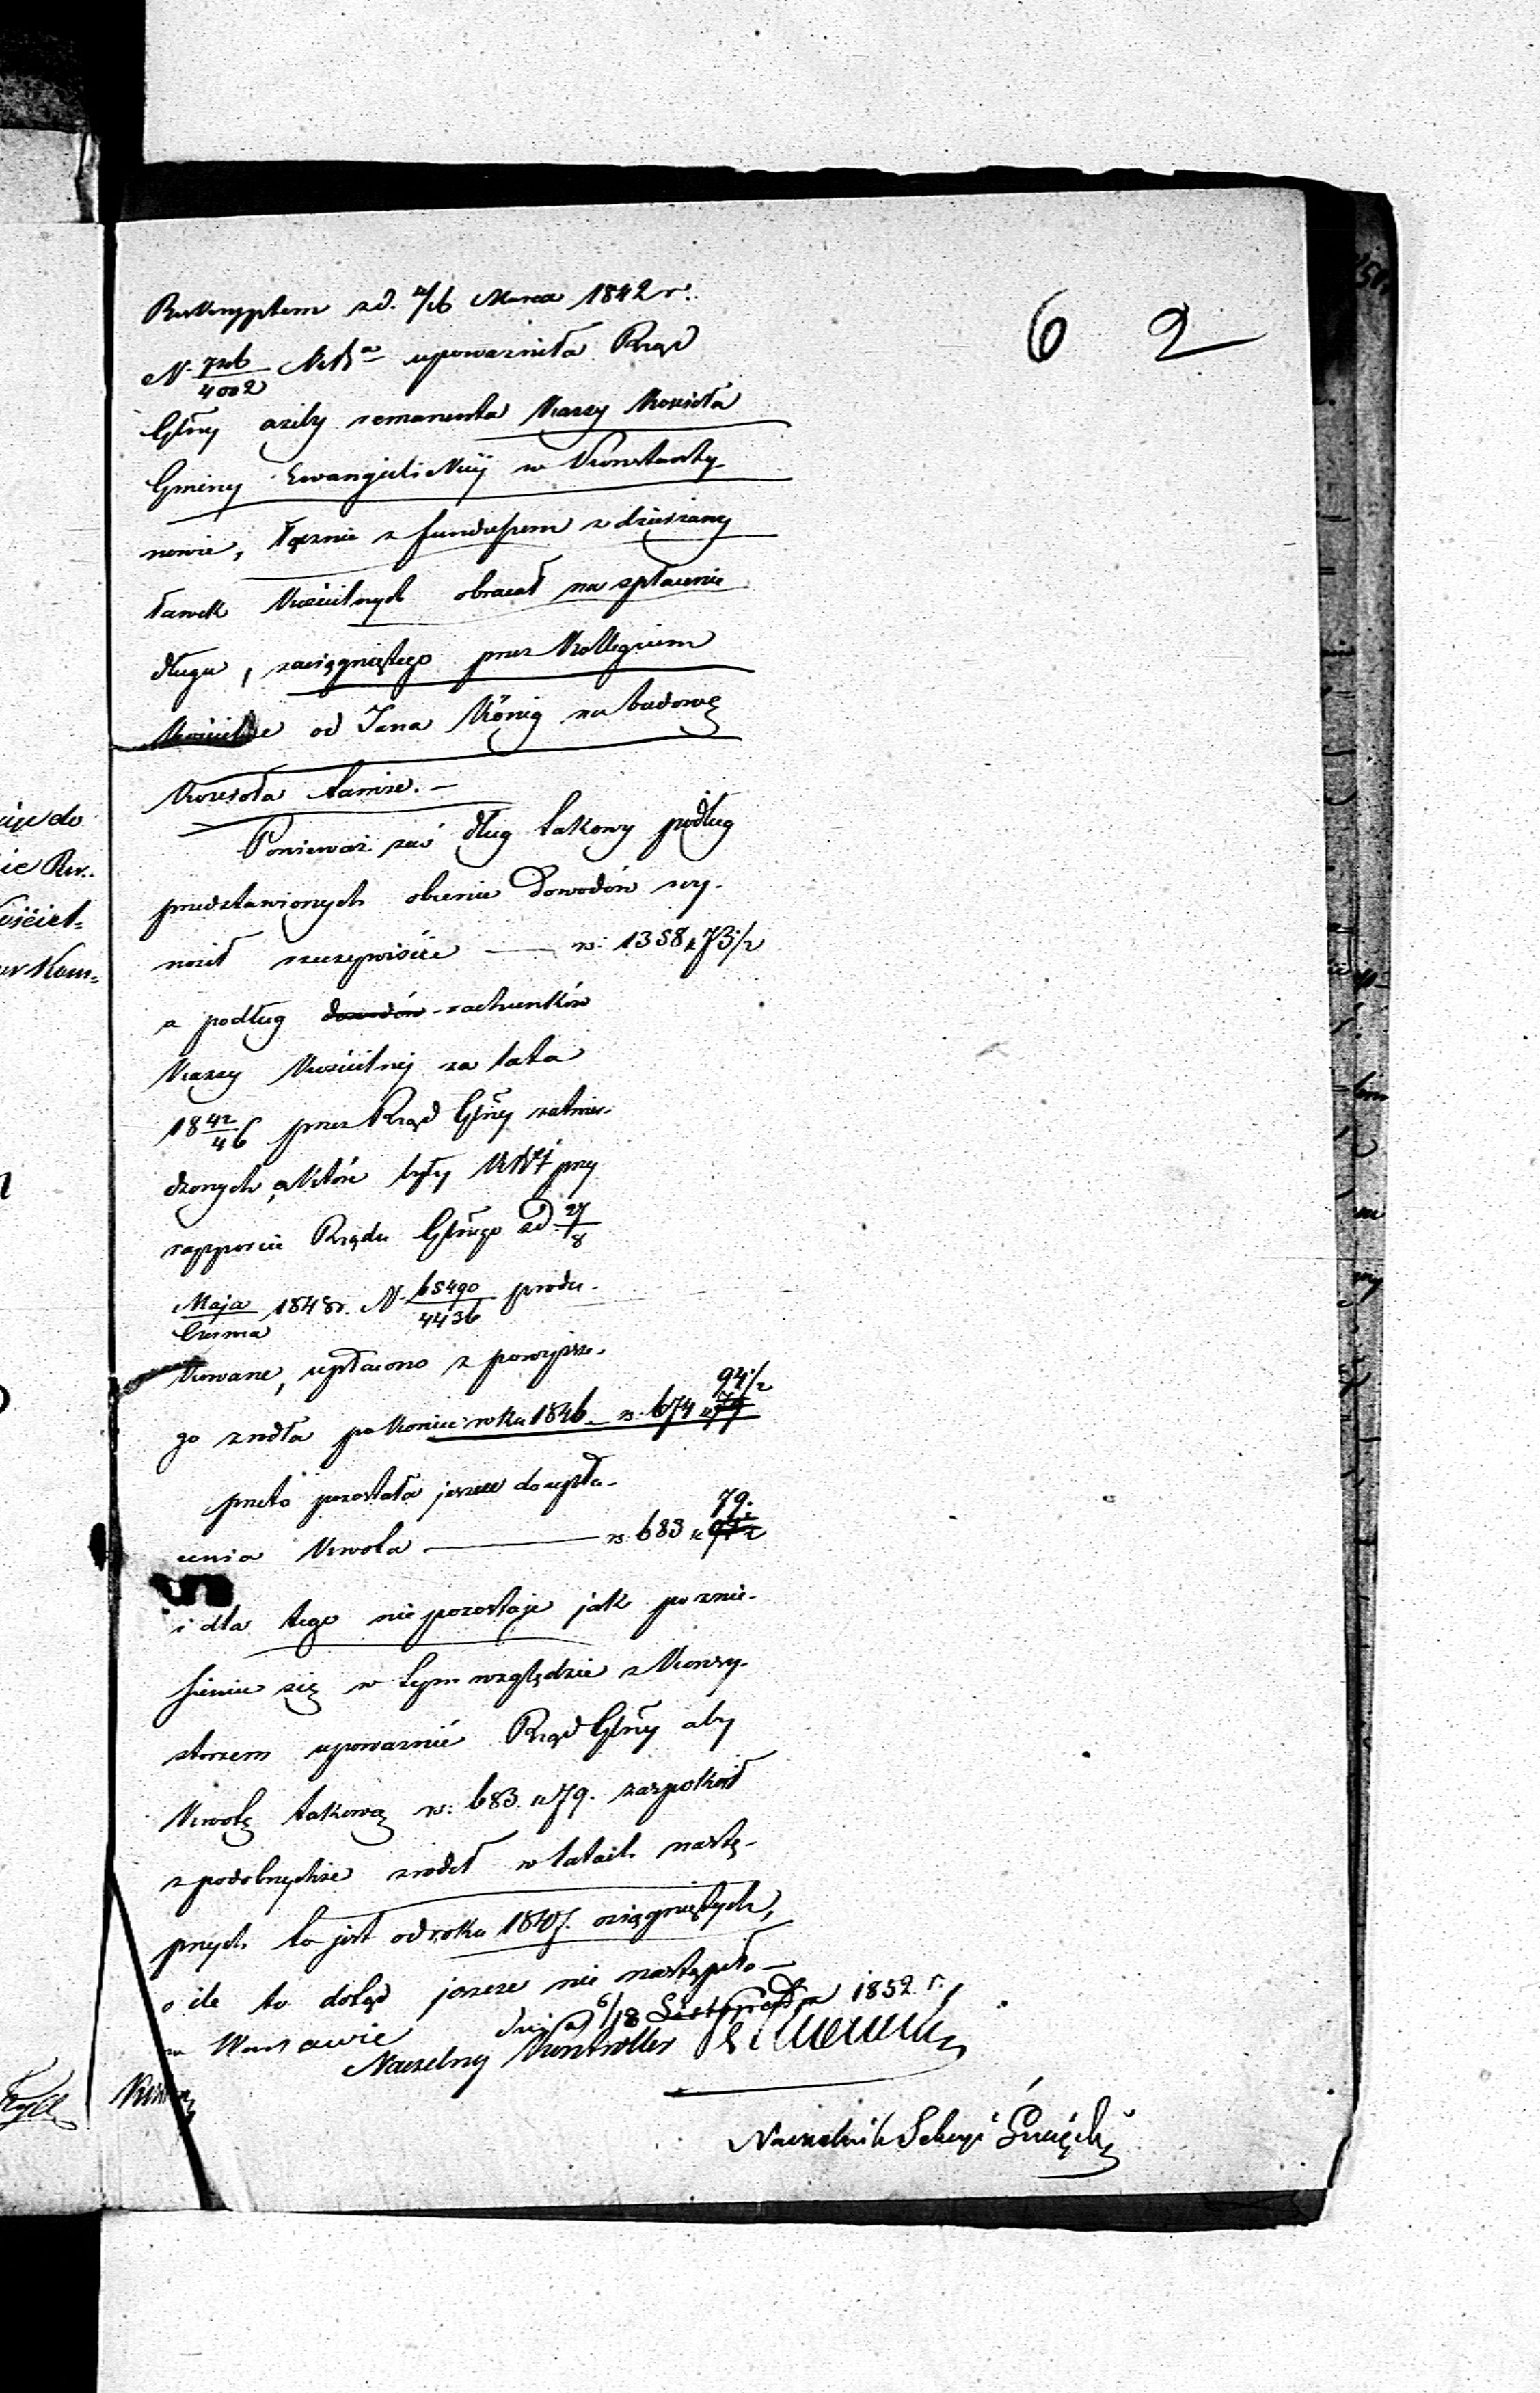 6 2
Reskryptem z d. 4/16 Marca 1842 r.
N. 7206/4002 KRSa upoważniła Rząd
Gbny ażeby remanenta Kassy Kościoła
Gminy Ewangielickiéj w Konstanty-
nowie, łącznie z funduszem z dzierżawy
ławek Kościelnych obracał na spłacenie
długu, zaciągniętego przez Kollegium
Kościelne od Jana König na budowę
Kościoła tamże. —
Ponieważ zaś dług takowy podług
przedstawionych obecnie Dowodów wy-
nosił rzeczywiście — rs: 1358 k 73 1/2
a podług dowodów rachunków
Kassy Kościelnéj za lata
18 42/46 przez Rząd Gbny zatwier-
dzonych, a które były przy
rapporcie Rządu Gbnego z d. 27/8
Maja/Czerwca 1848 r. N. 65490/4436 produ-
kowane, upłacono z powyższe-
go źródła po koniec roku 1846 — rs: 674 k 94 1/2
przeto pozostała jeszcze do upła-
cenia Kwota — rs 683 k 79.
i dla tego nie pozostaje jak po znie-
sieniu się w tym względzie z Konsy-
storzem upoważnić Rząd Gbny aby
Kwotę takową rs: 683. k 79. zaspokoił
z podobnychże źródeł w latach nastę-
pnych to jest od roku 1847. osiągniętych,
o ile to dotąd jeszcze nie nastąpiło —
w Warszawie dnia 6/18 Listopada 1852 r.
Naczelny Kontroller
Naczelnik Sekcyi